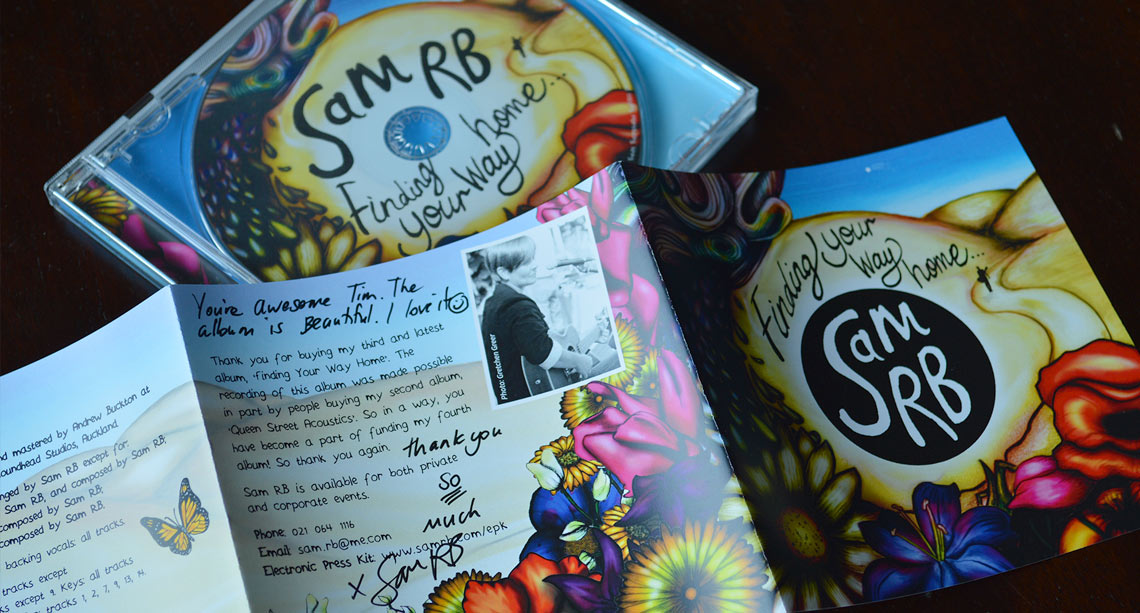 Sam RB
Finding
your Way
home...
You're Awesome Tim. The
album is Beautiful. I love it
Thank you for buying my third and latest
album, 'Finding Your Way Home'. The
recording of this album was made possible
in part by people buying my second album,
'Queen Street Acoustics'. So in a way, you
have become a part of funding my fourth
album! So thank you again.
thank you
so
much
Sam RB is available for both private
and corporate events.
Phone: 021 064 1116
Email: sam.rb@me.com
Electronic Press Kit: www.samrb.com/epk
x Sam RB
Photo: Gretchen Greer
mastered by Andrew Buckton at
oundhead Studios, Auckland
nged by Sam RB except for:
Sam RB, and composed by Sam RB;
composed by Sam RB;
composed by Sam RB.
backing vocals: all tracks
tracks except
s except 9. Keys: all tracks
tracks 1, 2, 7, 9, 13, 14
Finding your
Way
home...
Sam
RB